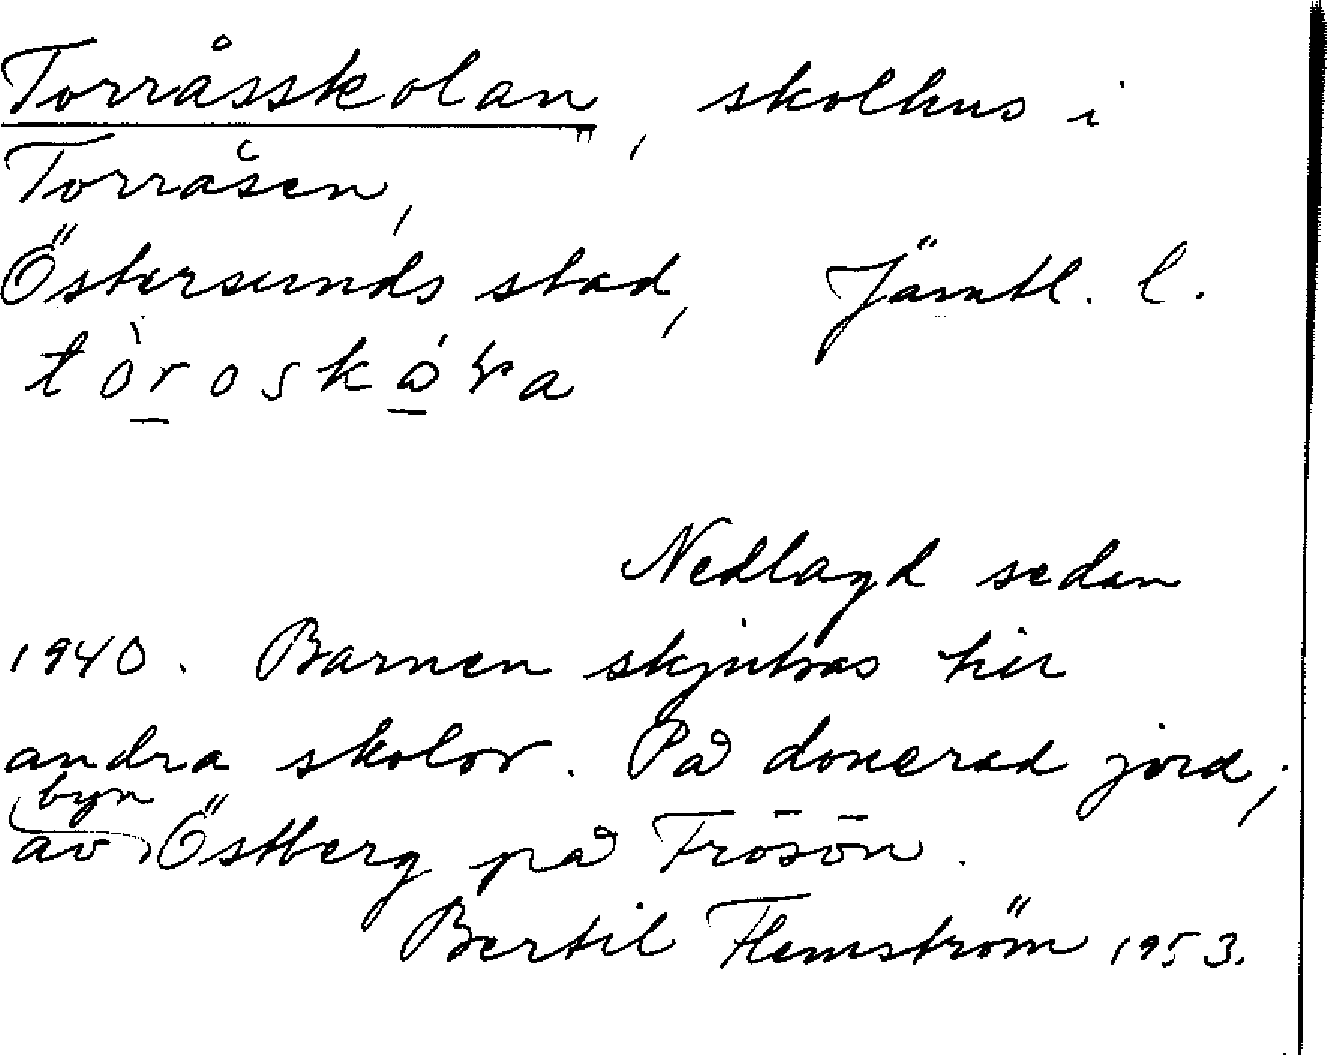 Torråsskolan, skolhus i
Torråsen,
Östersunds stad, Jämtl. l.
Nedlagd sedan
1940. Barnen skjutsas till
andra skolor. På donerad jord;
byn
av Östberg på Frösön.
Bertil Flemström 1953.